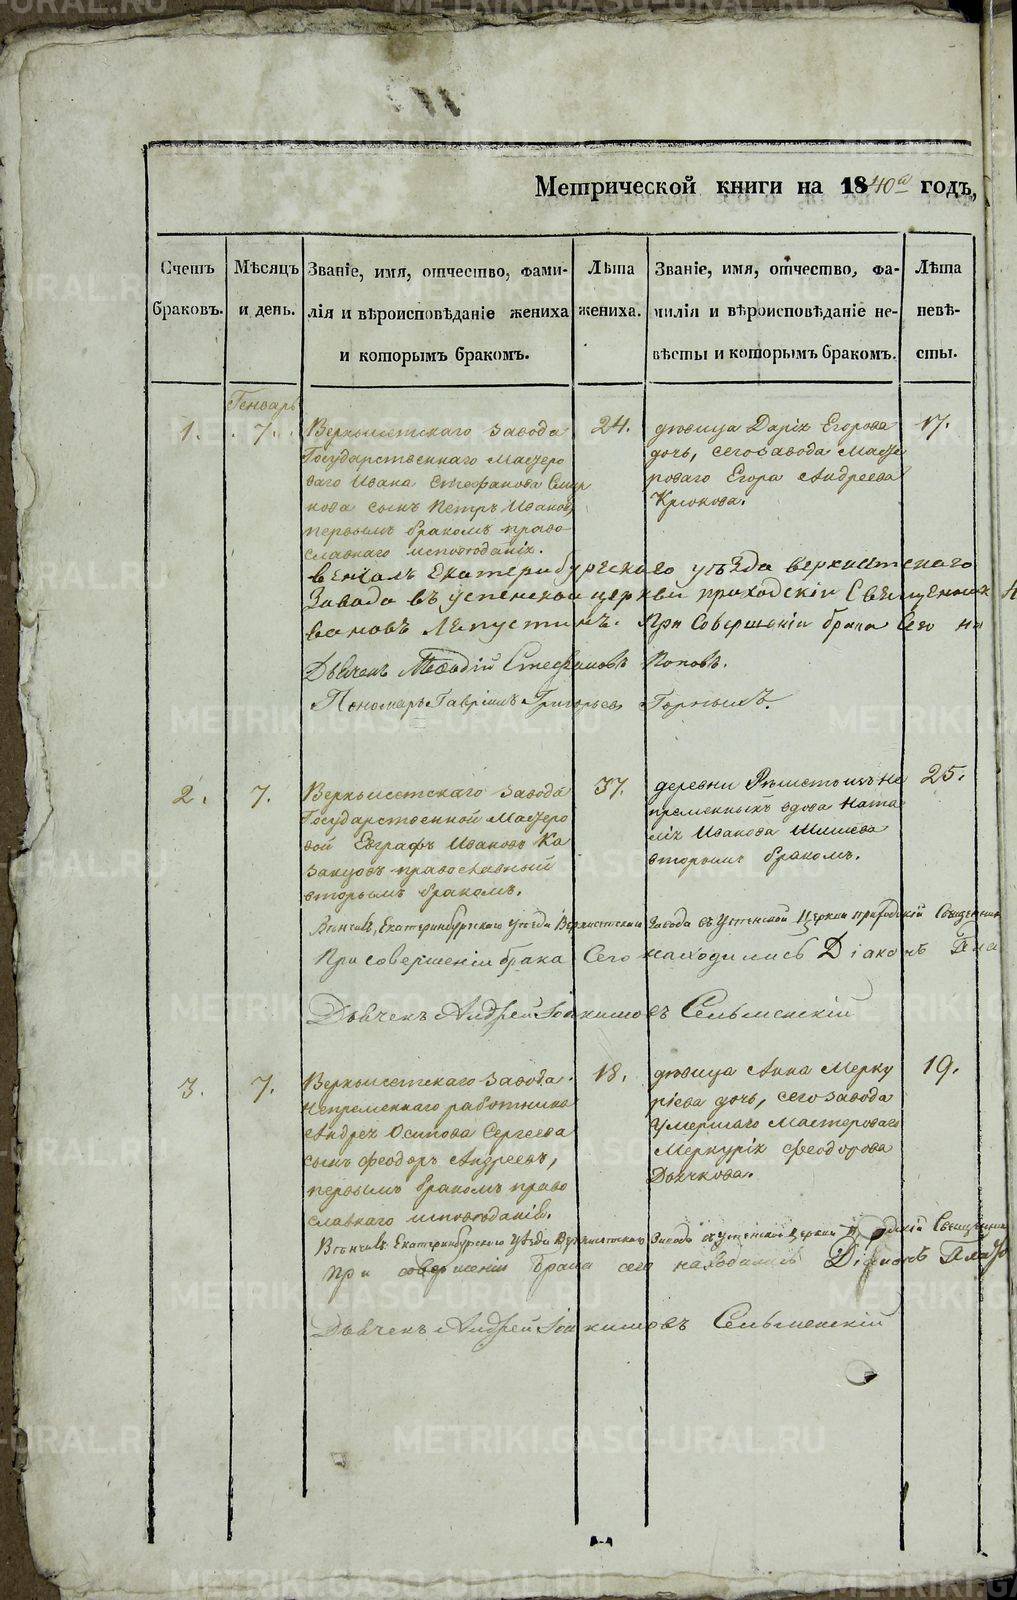 Метрической книги на 1840й годъ,
Счетъ браковъ.
Мѣсяцъ и день.
Званіе, имя, отчество, фами-
лія и вѣроисповѣданіе жениха
и которымъ бракомъ.
Лѣта жениха.
Званіе, имя, отчество, фа-
милія и вѣроисповѣданіе не-
вѣсты и которымъ бракомъ.
Лѣта невѣ-
сты.
Генварь
1.
7.
Верхъисетскаго завода
Государственнаго Мастеро
ваго Ивана Стефанова
нова сынъ Петръ Ивановъ
первымъ бракомъ право
славнаго исповѣданія.
24.
дѣвица Дарія Егорова
дочь, сего завода Масте
роваго Егора Андреева
Крюкова.
17.
венчалъ Екатеринбургскаго уѣзда верхисетскаго
Завода въ успенской церкви приходскій Священникъ
вановъ Ляпустинъ. При Совершеніи брака Сего на
Дьячекъ Стефановъ Поповъ.
Пономарь Гавріилъ Григорьевъ Горныхъ.
2.
7.
Верхъисетскаго завода
Государственной Мастеро
вой Евграфъ Ивановъ Ка
занцовъ православный
вторымъ бракомъ.
37.
деревни Рѣшетъ изъ не
премѣнныхъ вдова Ната
лія Иванова Шишева
вторымъ бракомъ.
25.
Вѣнчалъ, Екатеринбургскаго Уѣзда Верхисетскаго Завода въ Успенской Церкви приходскій Священникъ
При совершеніи брака Сего находились Діаконъ
Дьячекъ Андрей Іоакимовъ Сельменскій
3.
7.
Верхъисетскаго завода
Непремѣннаго работника
Андрея Осипова Сергеева
сынъ Феодоръ Андреевъ,
первымъ бракомъ право
славнаго исповѣданія.
18.
дѣвица Анна Мерку
ріева дочь, сего завода
умершаго Мастероваго
Меркурія Феодорова
Дьячкова.
19.
Вѣнчалъ Екатеринбургскаго Уѣзда Верхисетскаго Завода въ Успенской Церкви Священникъ
При совершеніи Брака сего находились Діаконъ
Дьячекъ Андрей Іоакимовъ Сельменскій
METRIKI.GASO-URAL.RU